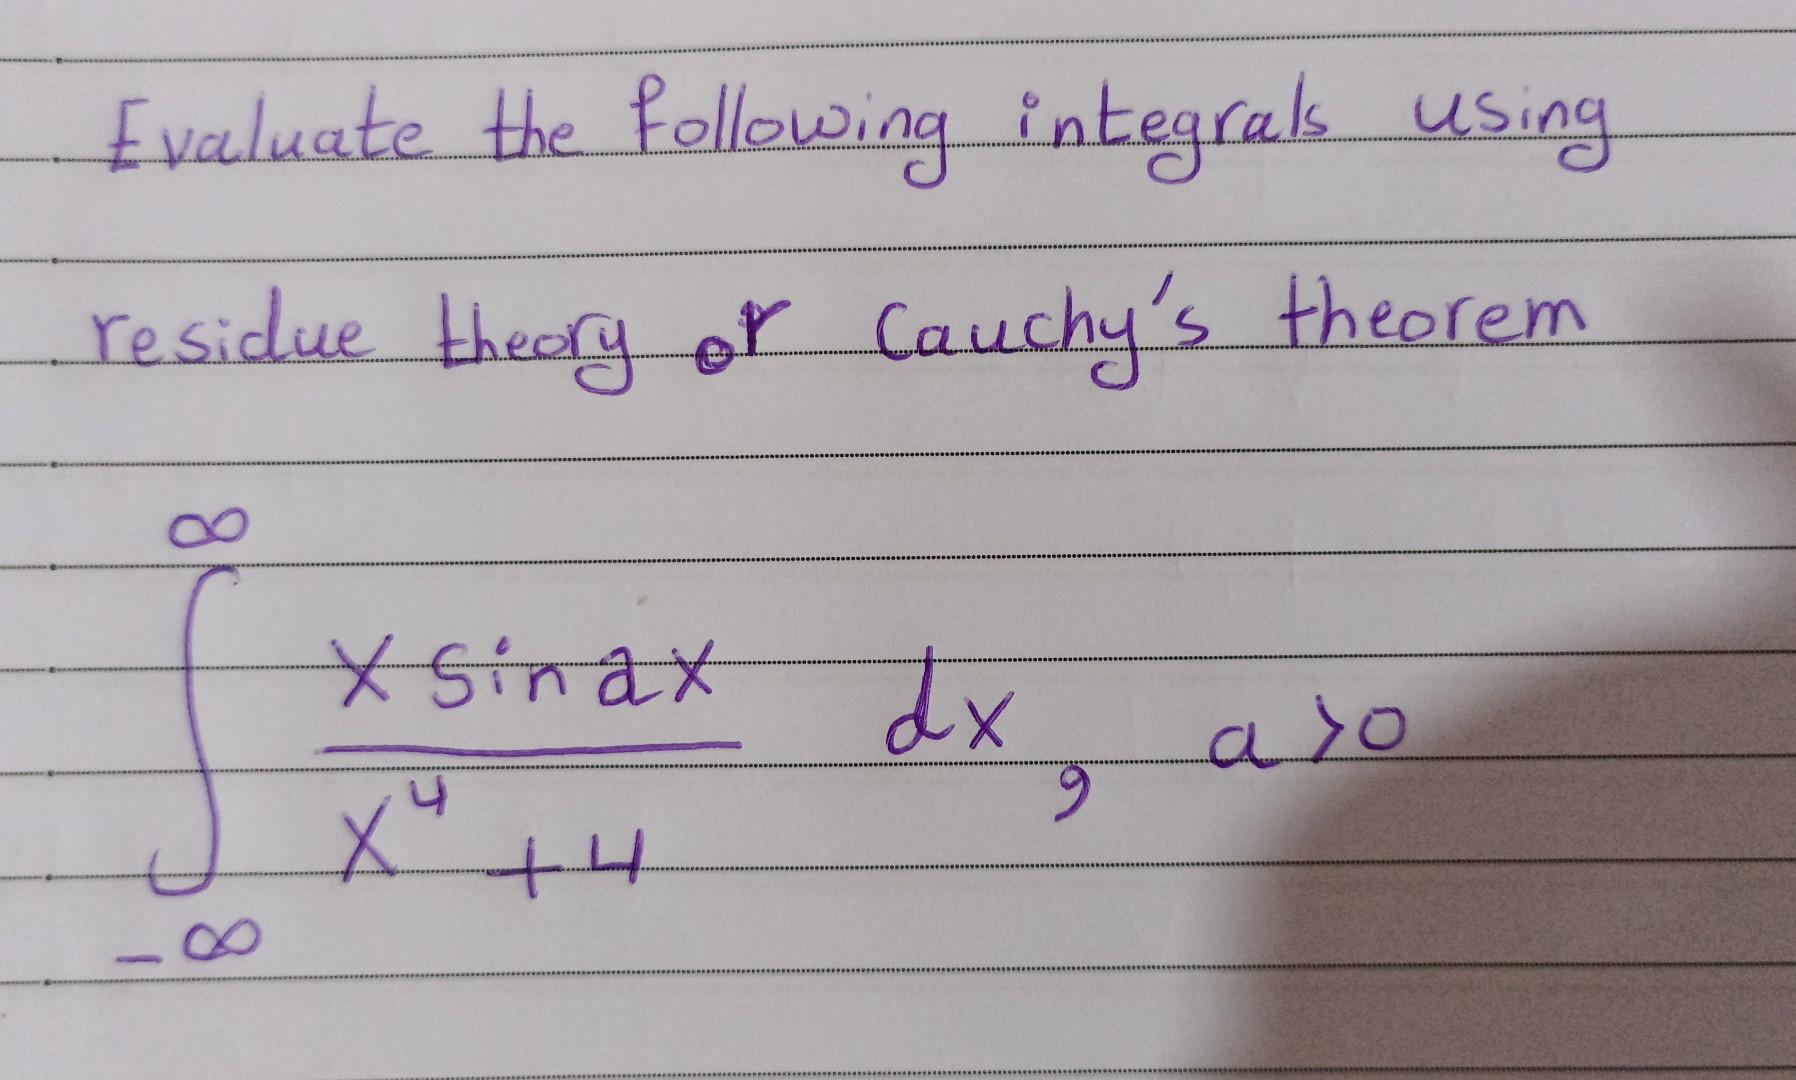 Evaluate the following integrals using
residue theory or Cauchy's theorem
∞
∫ x sin ax / x⁴ + 4 dx, a > 0
-∞